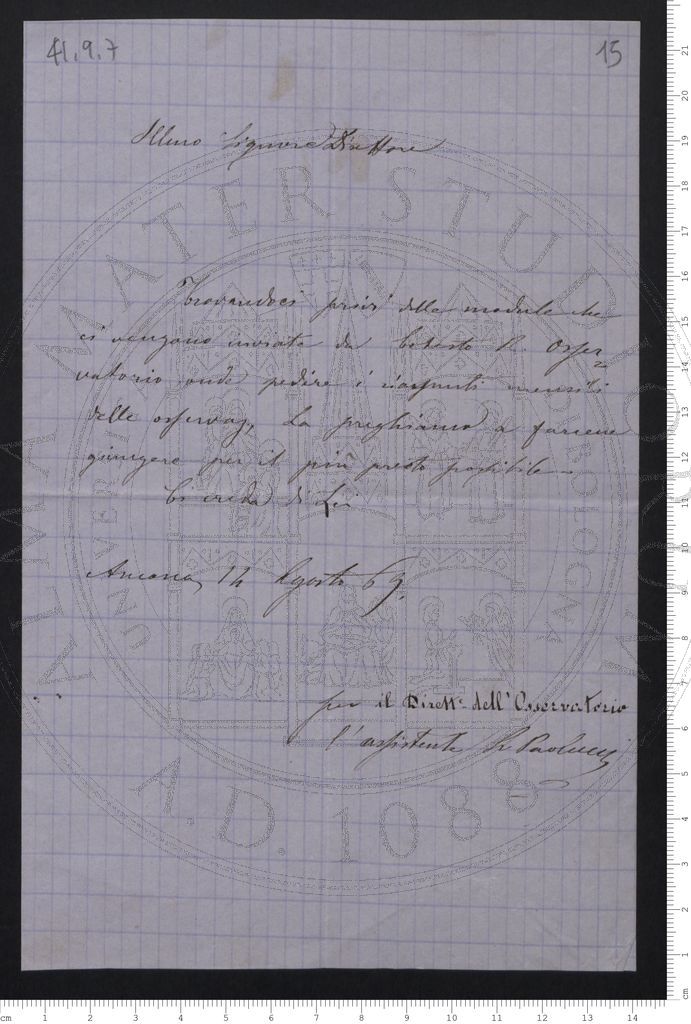 41.9.7
15
Illmo Signore Direttore
Trovandoci privi delle module che
ci vengono inviate da Codesto R. Osser=
vatorio onde pedire i riassunti mensili
delle osservaz, La preghiamo a farcene
giungere per il più presto possibile.
Ci creda di Lei
Ancona, 14 Agosto 69.
per il Dirett. dell'Osservatorio
l'assistente Paolucci
ALMA MATER STUDIORUM
A.D. 1088